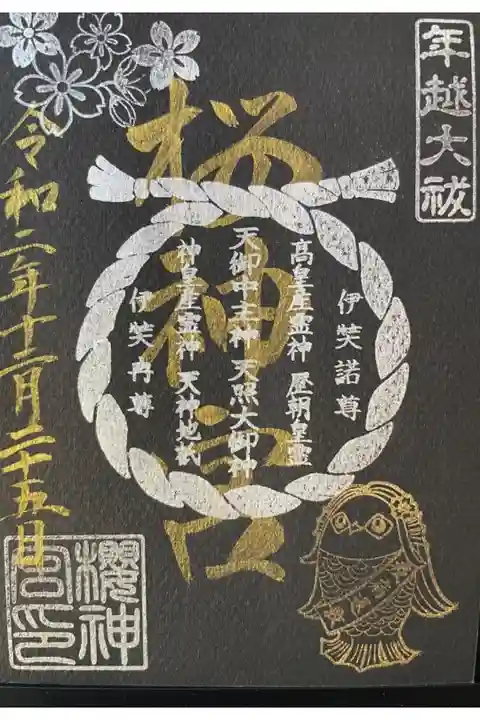 年越大祓
桜神宮
伊奘諾尊
高皇産霊神 歴朝皇霊
天御中主神 天照大御神
神皇産霊神 天神地祇
伊奘冉尊
令和二年十二月二十五日
櫻神
宮印